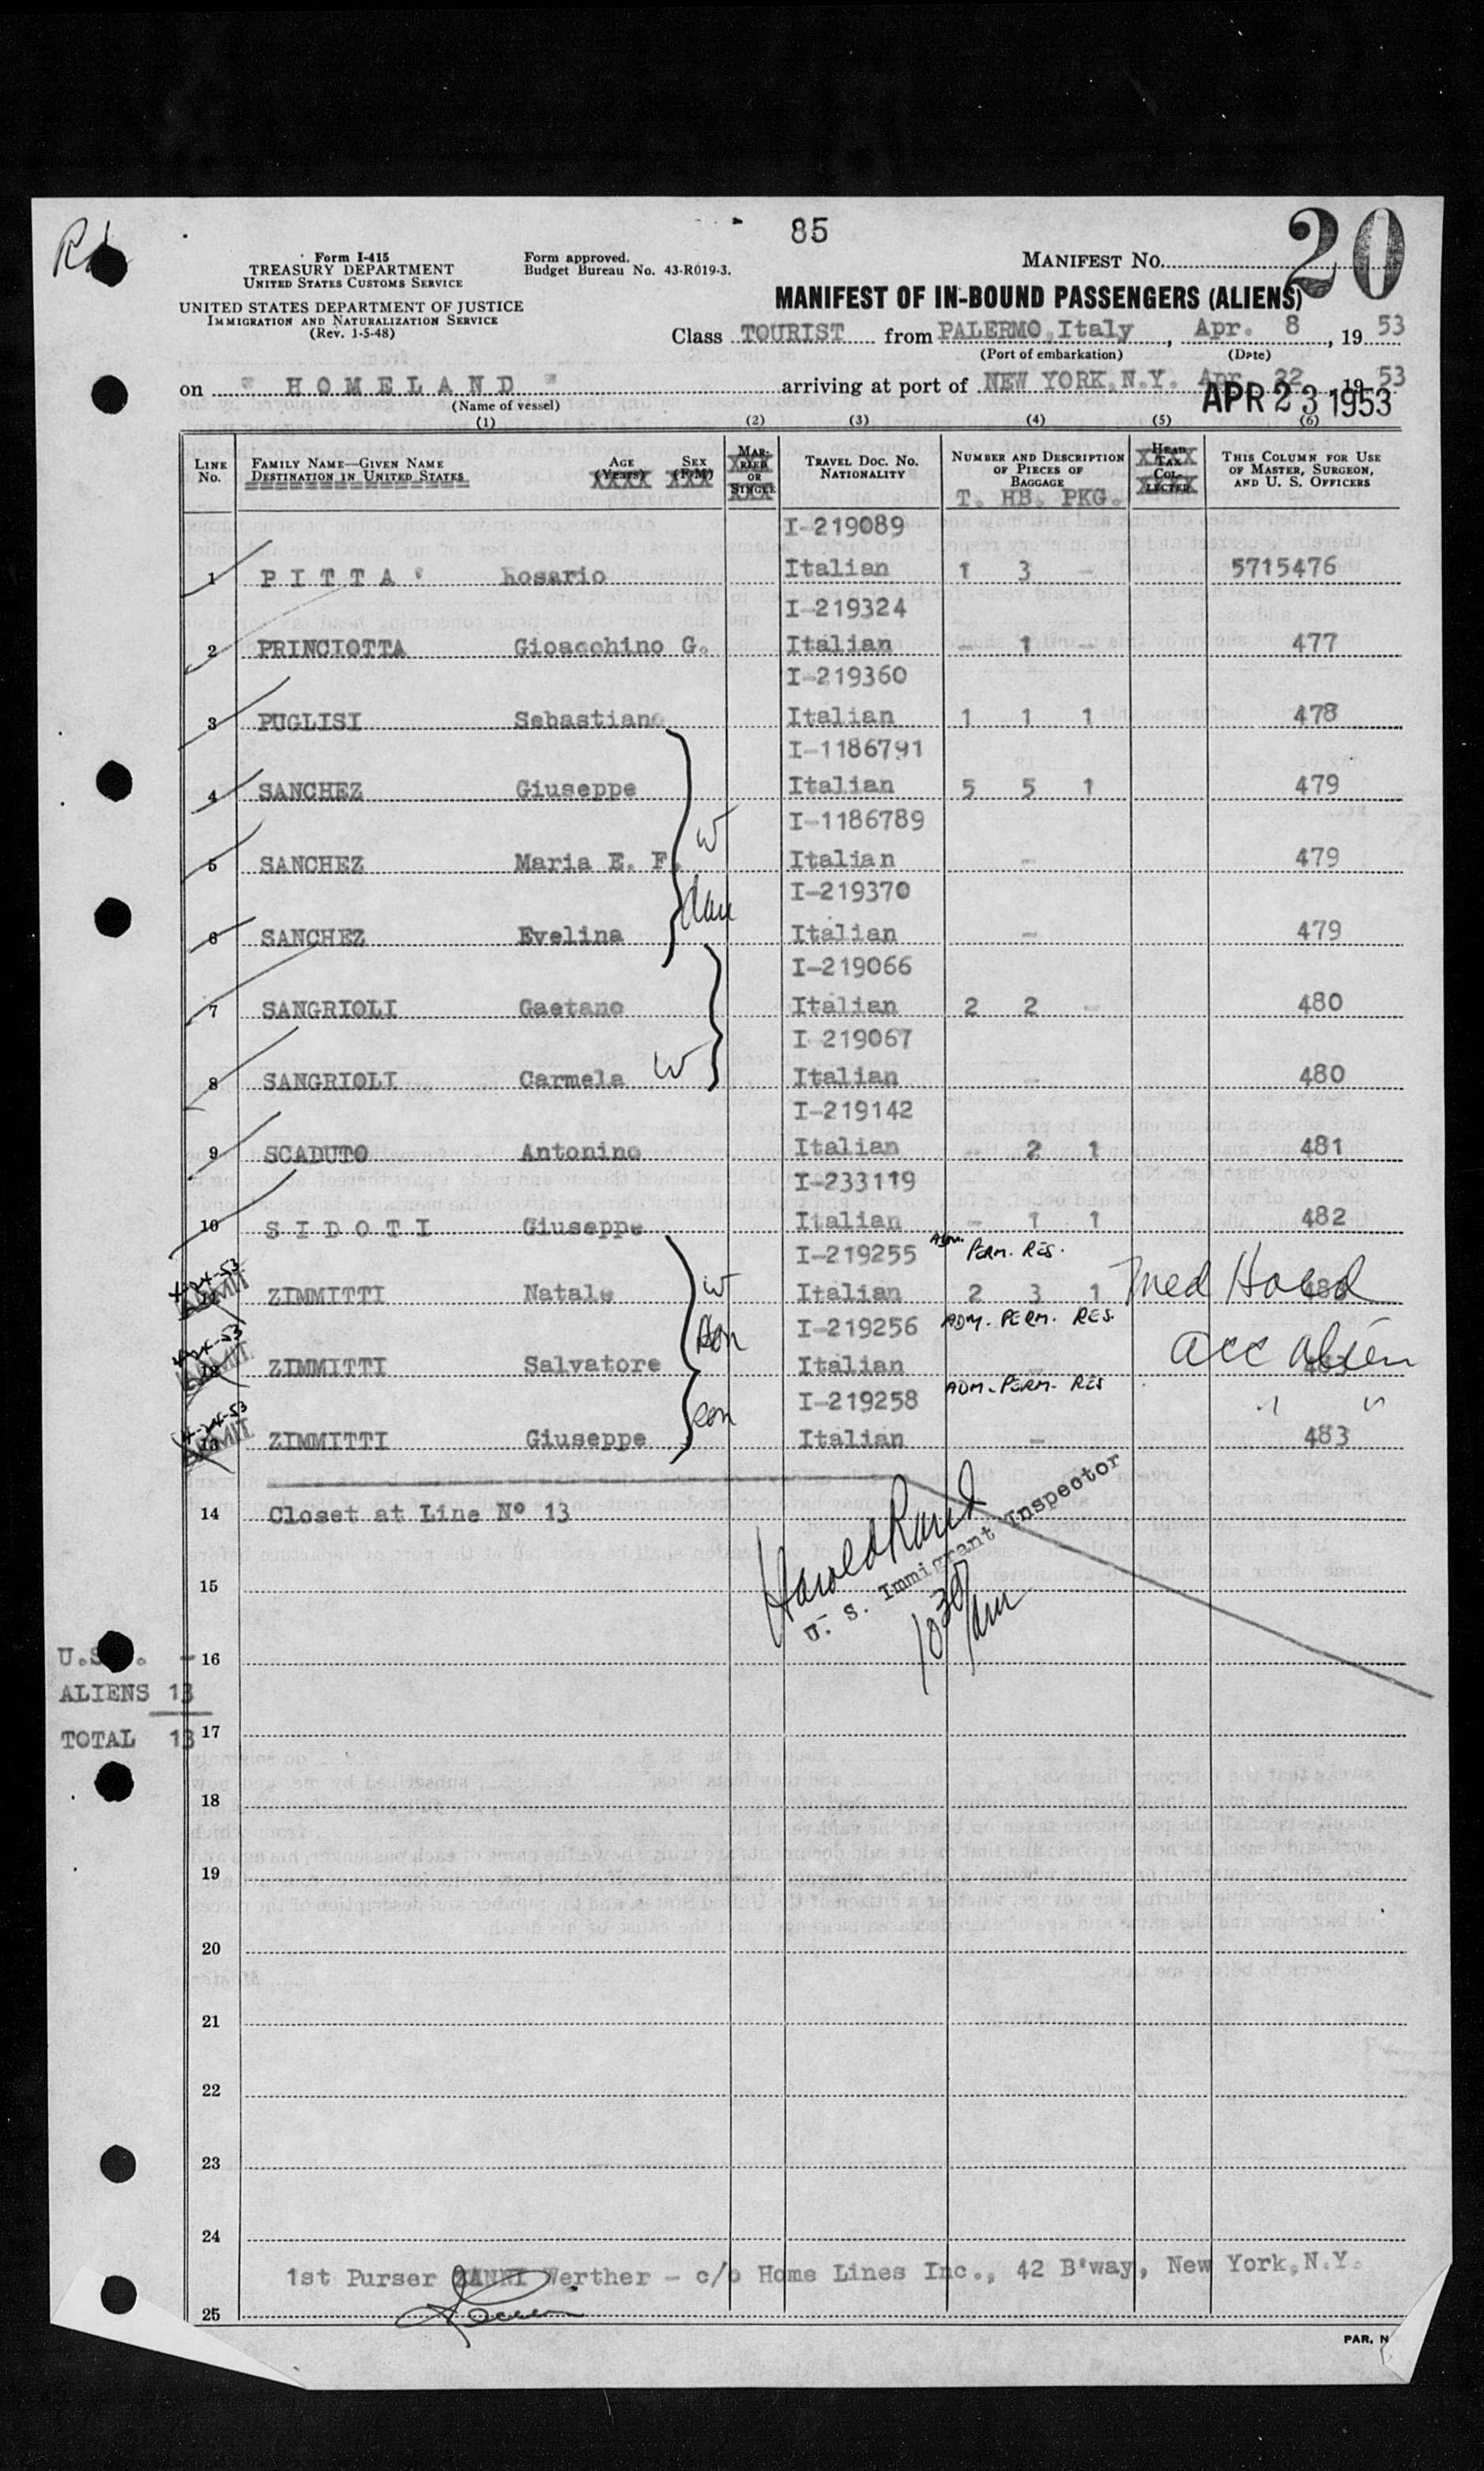 85
20
Form I-415
TREASURY DEPARTMENT
UNITED STATES CUSTOMS SERVICE
UNITED STATES DEPARTMENT OF JUSTICE
IMMIGRATION AND NATURALIZATION SERVICE
(Rev. 1-5-48)
Form approved.
Budget Bureau No. 43-R019-3.
MANIFEST NO.
MANIFEST OF IN-BOUND PASSENGERS (ALIENS)
Class TOURIST from PALERMO, Italy, Apr. 8, 1953
(Port of embarkation) (Date)
on " HOMELAND " arriving at port of NEW YORK, N.Y. Apr. 22, 1953
(Name of vessel)
APR 23 1953
(1) (2) (3) (4) (5) (6)
LINE NO. FAMILY NAME—GIVEN NAME DESTINATION IN UNITED STATES AGE (Years) SEX (F-M) MARRIED OR SINGLE TRAVEL DOC. NO. NATIONALITY NUMBER AND DESCRIPTION OF PIECES OF BAGGAGE HEAD TAX COLLECTED THIS COLUMN FOR USE OF MASTER, SURGEON, AND U. S. OFFICERS
T. HB. PKG.
I-219089
1 PITTA' Rosario Italian 1 3 - 5715476
I-219324
2 PRINCIOTTA Gioacchino G. Italian - 1 - 477
I-219360
3 PUGLISI Sebastiano Italian 1 1 1 478
I-1186791
4 SANCHEZ Giuseppe Italian 5 5 1 479
I-1186789
5 SANCHEZ Maria E. F. w Italian - 479
I-219370
6 SANCHEZ Evelina dau Italian - 479
I-219066
7 SANGRIOLI Gaetano Italian 2 2 - 480
I 219067
8 SANGRIOLI Carmela W Italian - 480
I-219142
9 SCADUTO Antonino Italian - 2 1 481
I-233119
10 SIDOTI Giuseppe Italian - 1 1 482
I-219255 ADM. PERM. RES.
4-24-53 ADMIT ZIMMITTI Natale w Italian 2 3 1 Med Hold 483
I-219256 ADM. PERM. RES.
4-24-53 ADMIT ZIMMITTI Salvatore son Italian - acc alien 483
I-219258 ADM. PERM. RES
4-24-53 ADMIT 13 ZIMMITTI Giuseppe son Italian - " " 483
14 Closet at Line Nº 13
Harold Rand
U. S. Immigrant Inspector
10 30 am
15
16
U.S. . -
ALIENS 13
TOTAL 13
17
18
19
20
21
22
23
24
1st Purser ZANNI Werther - c/o Home Lines Inc., 42 B'way, New York, N.Y.
25
PAR. N